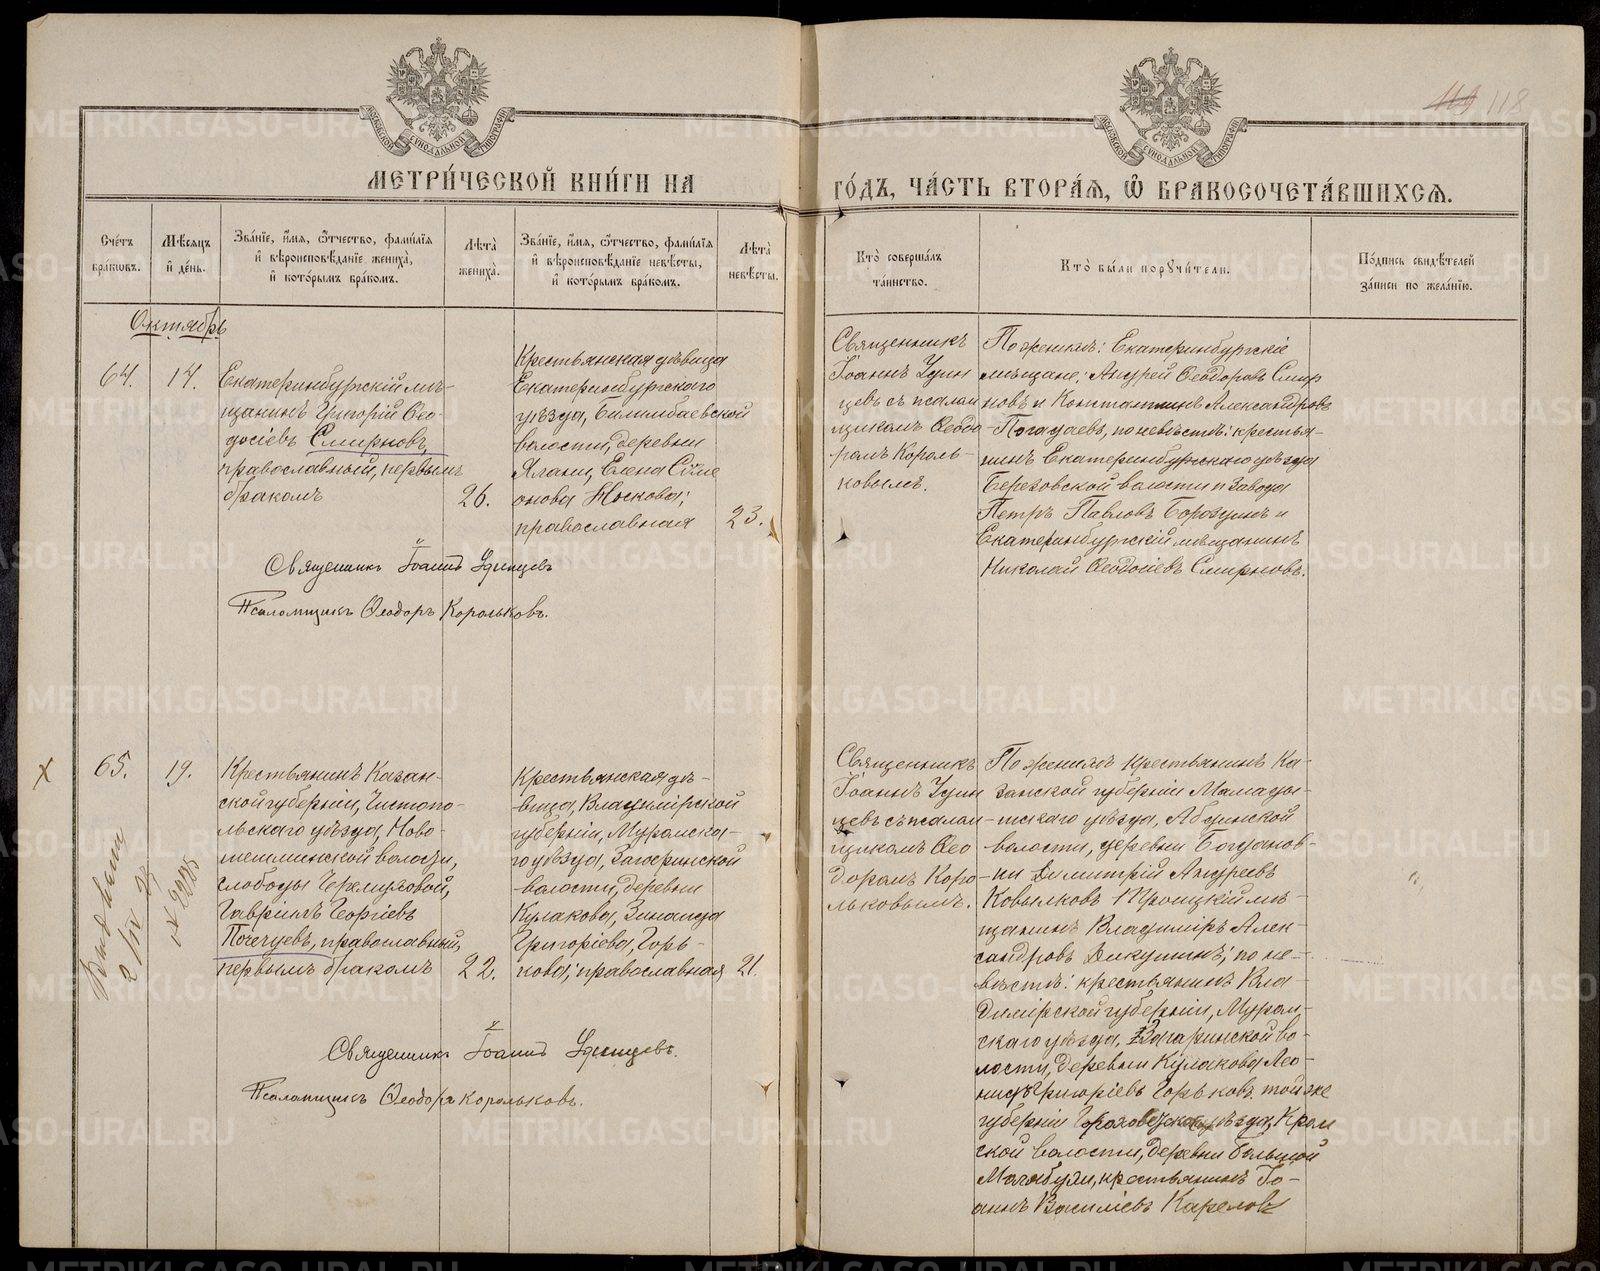 119 118
МОСКОВСКОЙ СѴНОДАЛЬНОЙ ТИПОГРАФІИ
МОСКОВСКОЙ СѴНОДАЛЬНОЙ ТИПОГРАФІИ
МЕТРИ́ЧЕСКОЙ КНИ́ГИ НА
ГО́ДЪ, ЧА́СТЬ ВТОРА́Ѧ, Ѽ БРАКОСОЧЕТА́ВШИХСѦ.
Сче́тъ бра́кѡвъ.
Мѣ́сѧцъ и҆ де́нь.
Зва́нїе, и҆́мѧ, ѻ҆́тчество, фами́лїѧ
и҆ вѣроисповѣ́данїе жениха̀,
и҆ кото́рымъ бра́комъ.
Лѣта̀ жениха̀.
Зва́нїе, и҆́мѧ, ѻ҆́тчество, фами́лїѧ
и҆ вѣроисповѣ́данїе невѣ́сты,
и҆ кото́рымъ бра́комъ.
Лѣта̀ невѣ́сты.
Кто̀ соверша́лъ та́инство.
Кто̀ бы́ли порꙋчи́тели.
По́дпись свидѣ́телей за́писи по жела́нїю.
Октябрь
64.
14.
Екатеринбургскій мѣ-
щанинъ Григорій Ѳео-
досіевъ Смирновъ,
православный, первымъ
бракомъ
26.
Крестьянская дѣвица
Екатеринбургскаго
уѣзда, Билимбаевской
волости, деревни
Ялани, Елена Симе
онова Носкова;
православная
23.
Священникъ
Іоаннъ Удин
цевъ съ псалом
щикомъ Ѳеодо
ромъ Король-
ковымъ.
По женихѣ: Екатеринбургскіе
мѣщане: Андрей Ѳеодоровъ Смир
новъ и Константинъ Александровъ
Погадаевъ, по невѣстѣ: крестья-
нинъ Екатеринбургскаго уѣзда
Березовской волости и завода
Петръ Павловъ Бороздинъ и
Екатеринбургскій мѣщанинъ
Николай Ѳеодосіевъ Смирновъ.
Священникъ Іоаннъ Удинцевъ
Псаломщикъ Ѳеодоръ Корольковъ.
х
65.
19.
Крестьянинъ Казан-
ской губерніи, Чистопо-
льскаго уѣзда, Ново-
шешминской волости,
слободы Черемуховой,
Гавріилъ Георгіевъ
Почечуевъ, православный,
первымъ бракомъ
22.
Крестьянская дѣ-
вица, Владимірской
губерніи, Муромска-
го уѣзда, Загаринской
волости, деревни
Кулакова, Зинаида
Григоріева, Горь-
кова; православная
21.
Священникъ
Іоаннъ Удин
цевъ съ псалом-
щикомъ Ѳео
доромъ Коро
льковымъ.
По женихѣ крестьянинъ Ка-
занской губерніи Мамады-
шскаго уѣзда, Абдинской
волости, деревни Богданов-
ки Димитрій Андреевъ
Ковылковъ и Троицкій мѣ-
щанинъ Владиміръ Алек-
сандровъ Дикушинъ; по не-
вѣстѣ: крестьянинъ Вла-
димірской губерніи, Муром-
скаго уѣзда, Загаринской во-
лости, деревни Кулакова Лео-
нидъ Григоріевъ Горьковъ той же
губерніи Гороховецкаго уѣзда, Кром
ской волости, деревни Большой
крестьянинъ Іо-
аннъ Василіевъ Карелов
Священникъ Іоаннъ Удинцевъ.
Псаломщикъ Ѳеодоръ Корольковъ.
2/IV 25
№ 2285
METRIKI.GASO-URAL.RU